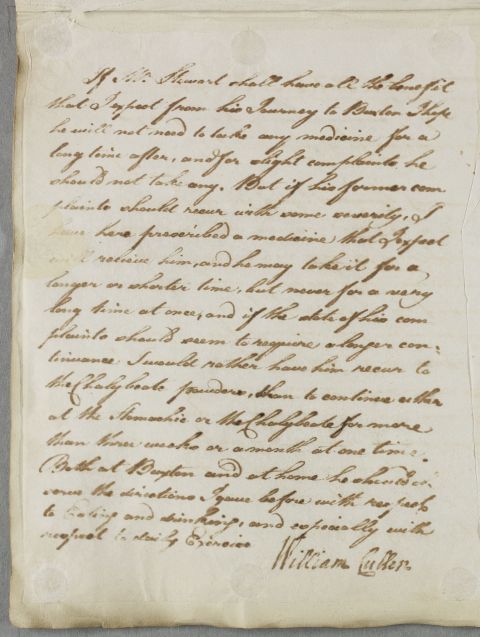 If Mr. Stewart shall have all the benefit
that I expect from his Journey to Buxton I hope
he will not need to take any medicine for a
long time after, and for slight complaints he
should not take any. But if his former com
plaints should recur with some severity, I
have here prescribed a medicine that I expect
will relieve him, and he may take it for a
longer or shorter time, but never for a very
long time at once; and if the state of his com
plaints should seem to require a longer con=
tinuance I would rather have him recur to
the Chalybeate powders, than to continue either
at the Stomachic or the Chalybeate for more
than three weeks or a month at one time.
Both at Buxton and at home he should ob
serve the directions I gave before with respect
to Eating and drinking, and especially with
respect to daily Exercise
William Cullen